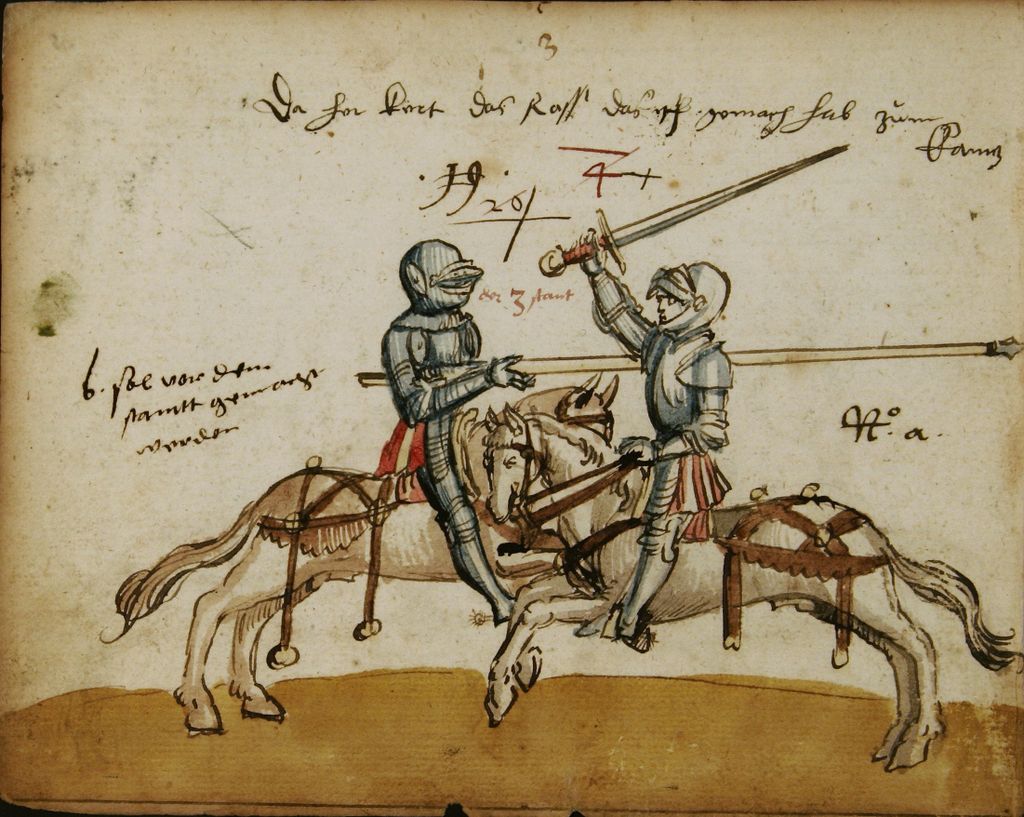 3
Da her kert das Ross das ich gemach hab zum
Kamp
19
26
4 +
der 3 stant
6. sol vor dem
stantt gemacht
werden
N.º a.